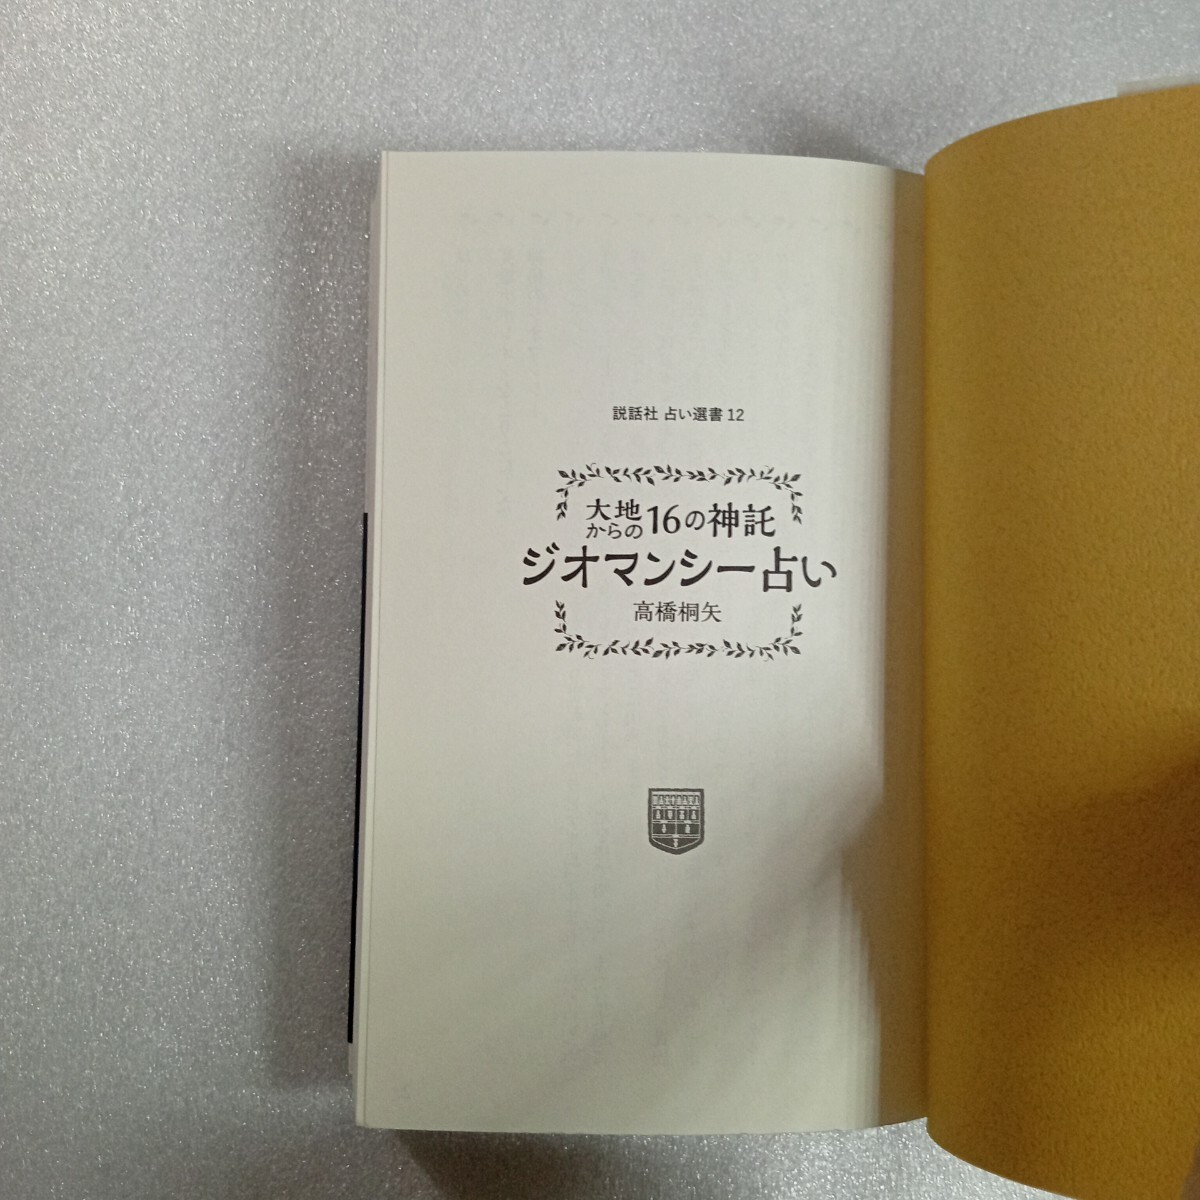 説話社 占い選書 12
大地からの16の神託
ジオマンシー占い
高橋桐矢